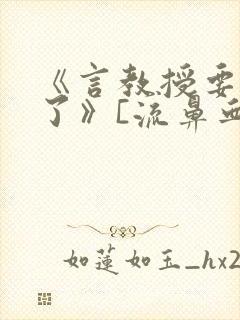 《言教授要
了》[流鼻血
如莲如玉_hx2